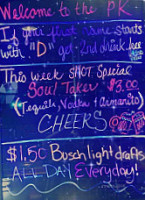 Welcome to the PK
If your first name starts
with "D" get 2nd drink free
This week SHOT Special
Soul Taker $3.00
(Tequila, Vodka & Amaretto)
CHEERS
$1.50 Busch light drafts
ALL DAY Everyday!